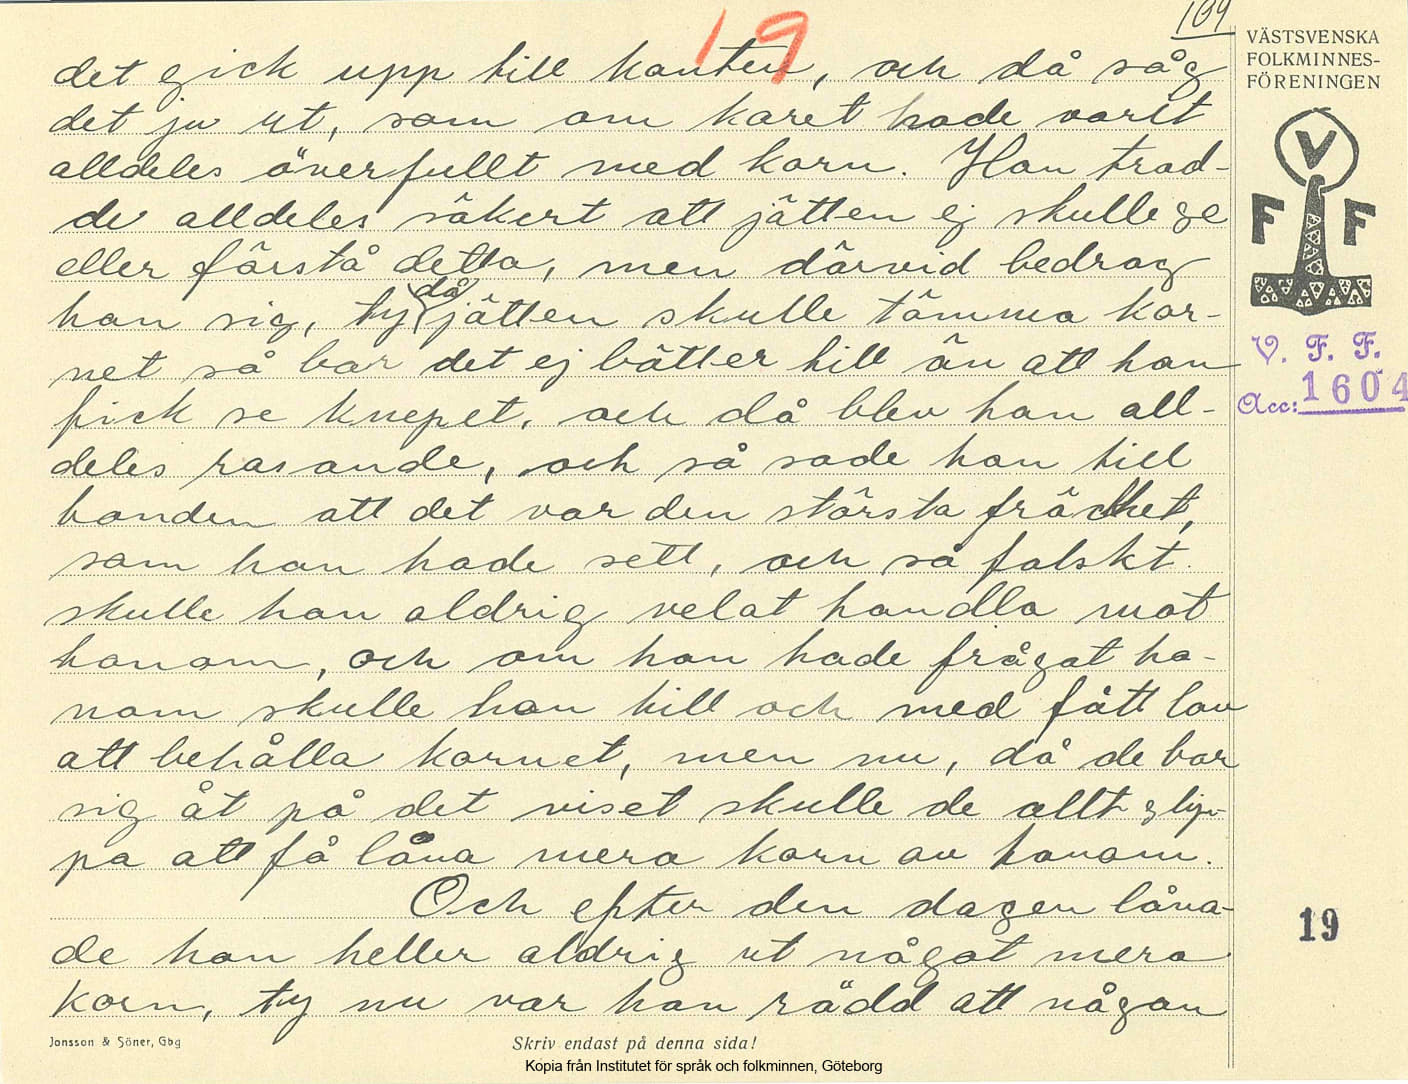 109
19
VÄSTSVENSKA
FOLKMINNES-
FÖRENINGEN
V
F F
V. F. F.
Acc: 1604
det gick upp till kanten, och då såg
det ju ut, som om karet hade varit
alldeles överfullt med korn. Han trod-
de alldeles säkert att jätten ej skulle ge
eller förstå detta, men därvid bedrog
han sig, ty då jätten skulle tömma kor-
net så bar det ej bätter till än att han
fick se knepet, och då blev han all-
deles rasande, och så sade han till
bonden att det var den största fräckhet,
som han hade sett, och så falskt
skulle han aldrig velat handla mot
honom, och om han hade frågat ho-
nom skulle han till och med fått lov
att behålla kornet, men nu, då de bar
sig åt på det viset skulle de allt
pa att få låna mera korn av honom.
Och efter den dagen låna-
de han heller aldrig ut något mera
korn, ty nu var han rädd att någon
19
Jonsson & Söner, Gbg
Skriv endast på denna sida!
Kopia från Institutet för språk och folkminnen, Göteborg